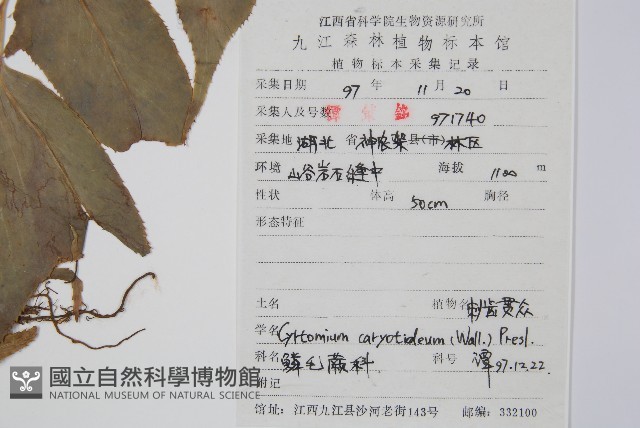 江西省科学院生物资源研究所
九江森林植物标本馆
植物标本采集记录
采集日期 97 年 11 月 20 日
采集人及号数 971740
采集地 湖北 省 神农架 县(市) 林区
环境 山谷岩石缝中 海拔 1100 m
性状 体高 50cm 胸径
形态特征
土名 植物名 刺齿贯众
学名 Cyrtomium caryotideum (Wall.) Presl.
科名 鳞毛蕨科 科号 谭 97.12.22.
附记
馆址:江西九江县沙河老街143号 邮编:332100
國立自然科學博物館
NATIONAL MUSEUM OF NATURAL SCIENCE